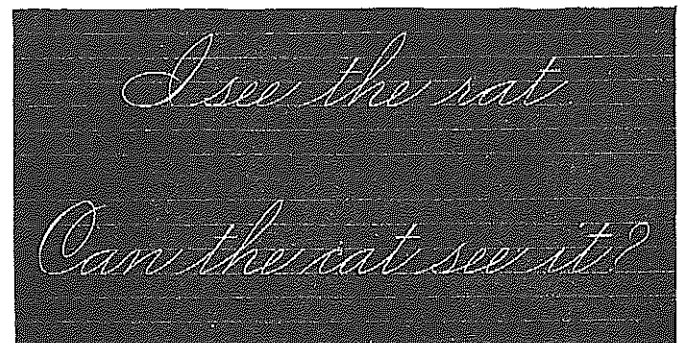 I see the rat
Can the cat see it?